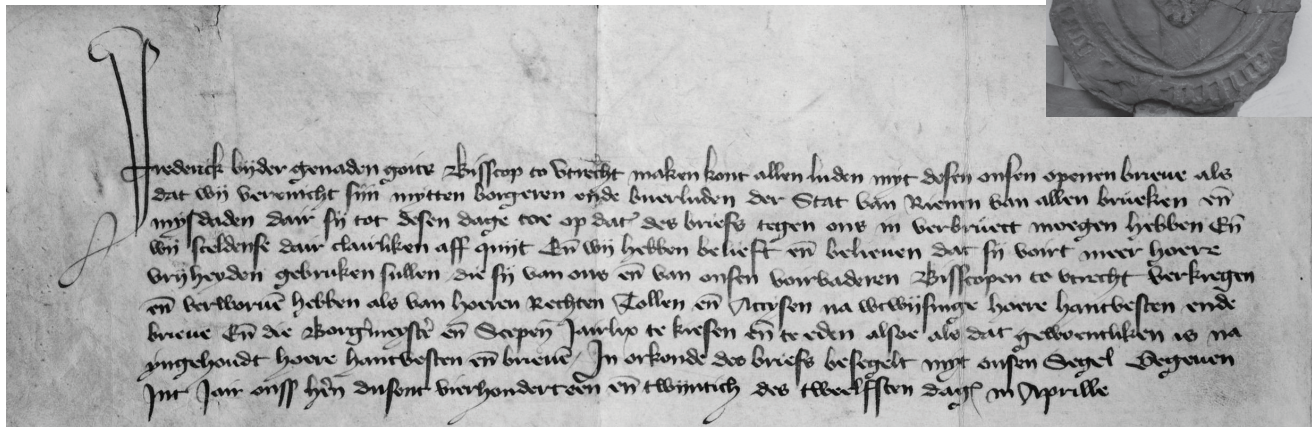 Frederick bijder genaden goits Bisscop to Utrecht maken kont allen luden myt desen onsen openen brieve als
dat wij verenicht sijn mytten borgeren ende buerluden der Stat van Rienen van allen brueken eñ
mysdaden dair sij tot desen dage toe op dat' des briefs tegen ons in verbruect moegen hebben Eñ
wij sceldense dair clairliken aff quijt Eñ wij hebben belieft eñ believen dat sij voirt meer hoere
vrijheyden gebruken sullen die sij van ons eñ van onsen voirvaderen Bisscopen te utrecht verkregen
eñ verworvē hebben als van hoeren Rechten Tollen eñ Accysen na wtwijsinge hoere hantvesten ende
brieve Eñ die Borg'meyst's eñ Scepen Jairlix te kiesen eñ te eden alsoe als dat gewoentliken is na
yngehoudt hoere hantvesten eñ brievē In orkonde des briefs besegelt myt onsen Segel Gegeven
Int Jair onss hēn dusent vierhondert een eñ twijntich des twelfften dag' in Aprille